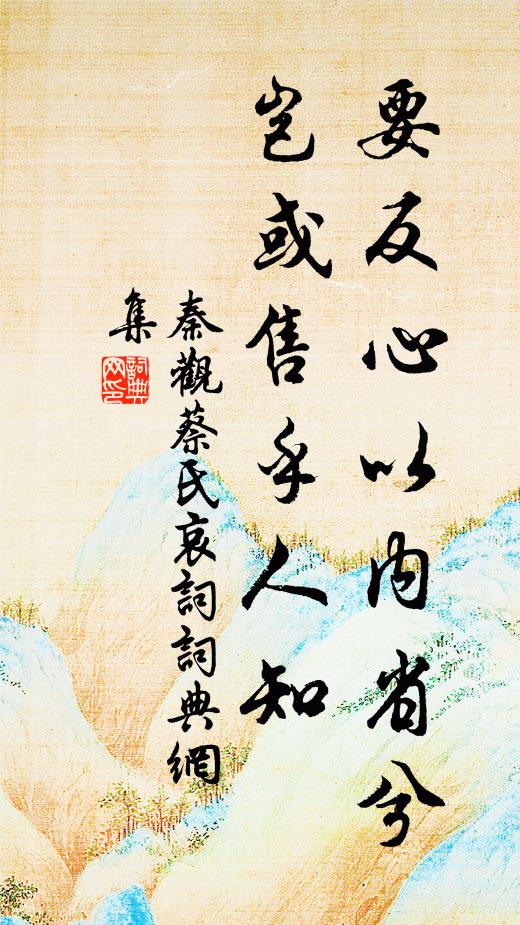 要反心以内省兮
岂或售乎人知
秦觀蔡氏哀詞詞典網
集
詞典网印